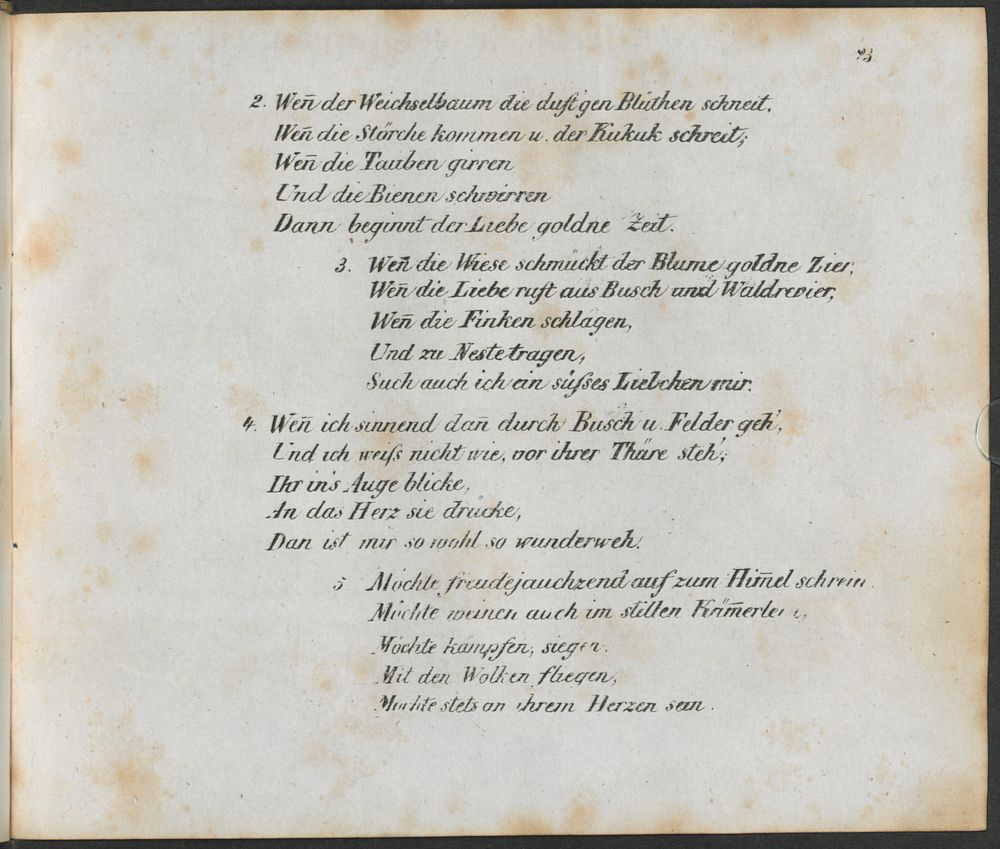 23.
2. Wen̄ der Weichselbaum die duft'gen Blüthen schneit,
Wen̄ die Störche kommen u. der Kukuk schreit;
Wen̄ die Tauben girren
Und die Bienen schwirren
Dann beginnt der Liebe goldne Zeit.
3. Wen̄ die Wiese schmückt der Blume goldne Zier,
Wen̄ die Liebe ruft aus Busch und Waldrevier,
Wen̄ die Finken schlagen,
Und zu Neste tragen,
Such auch ich ein süſses Liebchen mir.
4. Wen̄ ich sinnend dan̄ durch Busch u. Felder geh',
Und ich weiſs nicht wie, vor ihrer Thäre steh';
Ihr in's Auge blicke,
An das Herz sie drücke,
Dan ist mir so wohl so wunderweh.
5 Möchte freudejauchzend auf zum Him̄el schrein
Möchte weinen auch im stillen
Möchte kämpfen, siegen.
Mit den Wolken fliegen,
Möchte stets an ihrem Herzen sein.